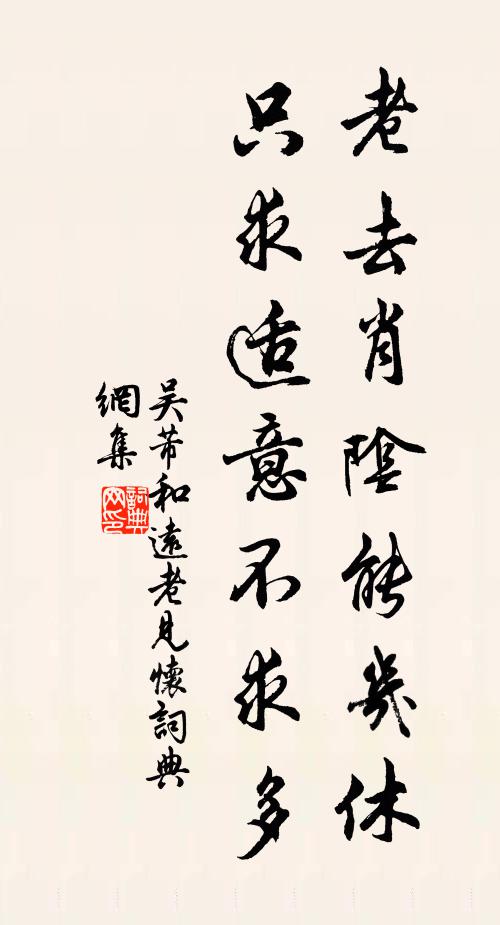 老去肖陰能幾休
只求适意不求多
吴芾和遠老見懷詞典
網集
詞典
网印